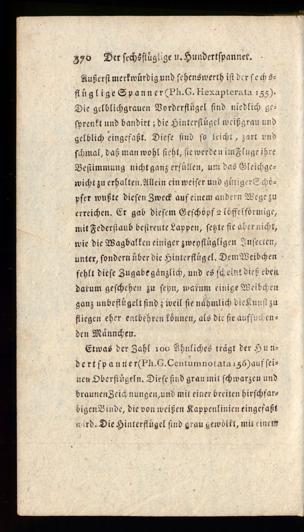 370 Der sechsflüglige u. Hundertspanner.
Äußerst merkwürdig und sehenswerth ist der sechs-
flüglige Spanner (Ph. G. Hexapterata 155).
Die gelblichgrauen Vorderflügel sind niedlich ge-
sprenkt und bandirt; die Hinterflügel weißgrau und
gelblich eingefaßt. Diese sind so leicht, zart und
schmal, daß man wohl sieht, sie werden im Fluge ihre
Bestimmung nicht ganz erfüllen, um das Gleichge-
wicht zu erhalten. Allein ein weiser und gütiger Schö-
pfer wußte diesen Zweck auf einem andern Wege zu
erreichen. Er gab diesem Geschöpf 2 löffelförmige,
mit Federstaub bestreute Lappen, setzte sie aber nicht,
wie die Wagbalken einiger zweyflügligen Insecten,
unter, sondern über die Hinterflügel. Dem Weibchen
fehlt diese Zugabe gänzlich, und es scheint dieß eben
darum geschehen zu seyn, warum einige Weibchen
ganz unbeflügelt sind; weil sie nähmlich die Kunst zu
fliegen eher entbehren können, als die sie aufsuchen-
den Männchen.
Etwas der Zahl 100 Ähnliches trägt der Hun-
dertspanner (Ph. G. Centumnotata 156) auf sei-
nen Oberflügeln. Diese sind grau mit schwarzen und
braunen Zeichnungen, und mit einer breiten hirschfar-
bigen Binde, die von weißen Kappenlinien eingefaßt
wird. Die Hinterflügel sind grau gewölkt, mit einem